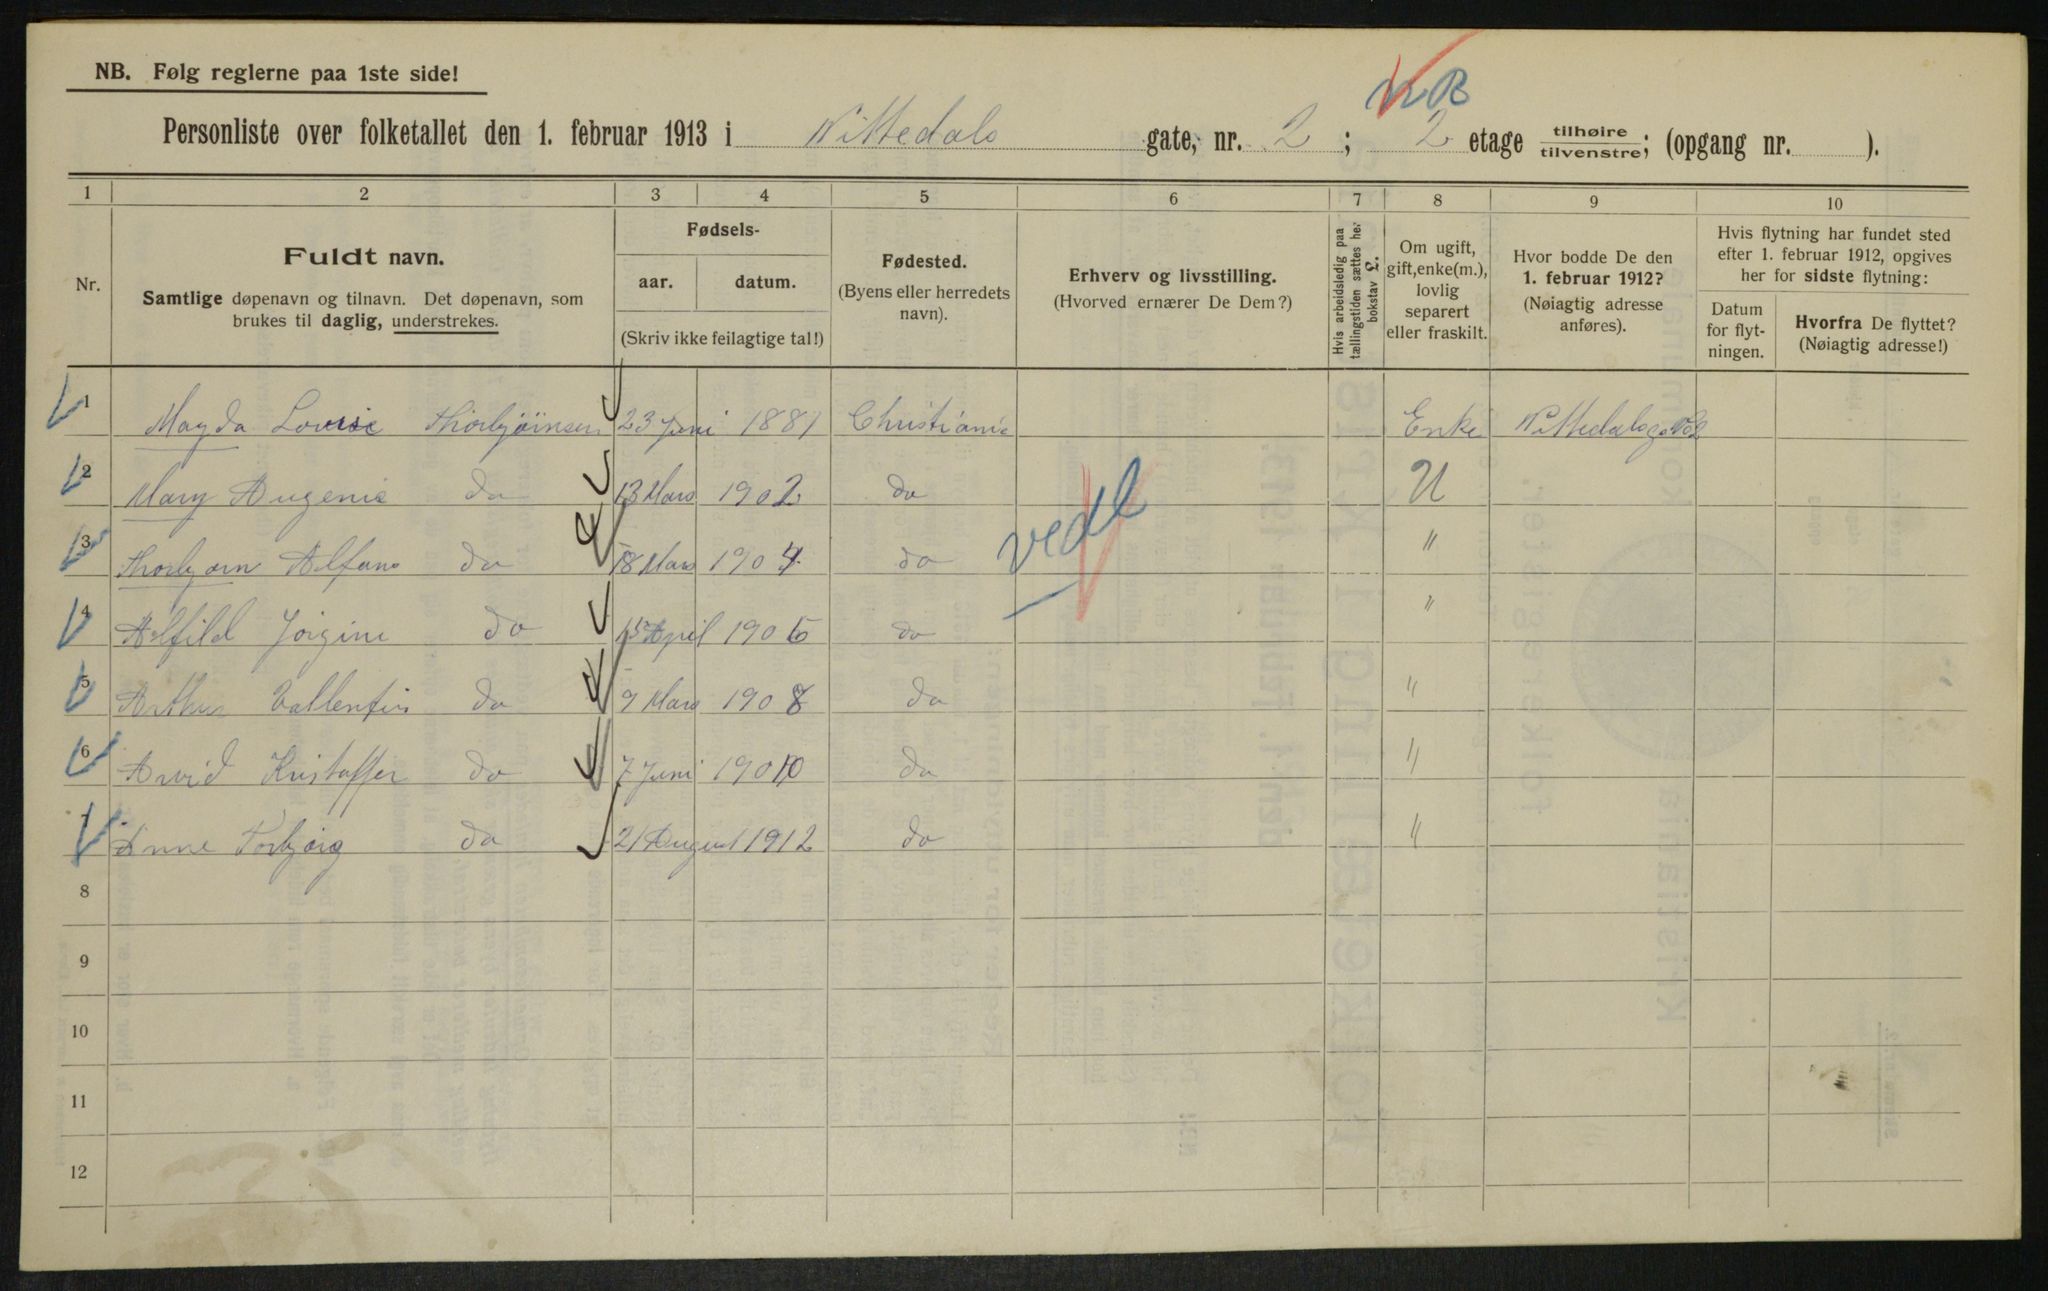 NB. Følg reglerne paa 1ste side!
Personliste over folketallet den 1. februar 1913 i Nittedals gate, nr. 2; 2 etage tilhøire tilvenstre; (opgang nr. ).
1 2 3 4 5 6 7 8 9 10
Nr.
Fuldt navn.
Samtlige døpenavn og tilnavn. Det døpenavn, som
brukes til daglig, understrekes.
Fødsels-
aar. datum.
(Skriv ikke feilagtige tal!)
Fødested.
(Byens eller herredets
navn).
Erhverv og livsstilling.
(Hvorved ernærer De Dem?)
Hvis arbeidsledig paa
tællingstiden sættes her
bokstav L.
Om ugift,
gift, enke(m.),
lovlig
separert
eller fraskilt.
Hvor bodde De den
1. februar 1912?
(Nøiagtig adresse
anføres).
Hvis flytning har fundet sted
efter 1. februar 1912, opgives
her for sidste flytning:
Datum
for flyt-
ningen.
Hvorfra De flyttet?
(Nøiagtig adresse!)
1 Magda Lovise Thorbjörnsen 23 Juni 1881 Christiania Enke Nittedalsg. No 2
2 Mary Augenie do 13 Mars 1902 do U
3 Thorbjørn Alfons do 18 Mars 1904 do "
4 Alfild Jorgine do 15 April 1906 do "
5 Arthur Vallentin do 9 Mars 1908 do "
6 Arvid Kristoffer do 7 Juni 1910 do "
7 Anne Torbjørg do 21 August 1912 do "
vedl
8
9
10
11
12